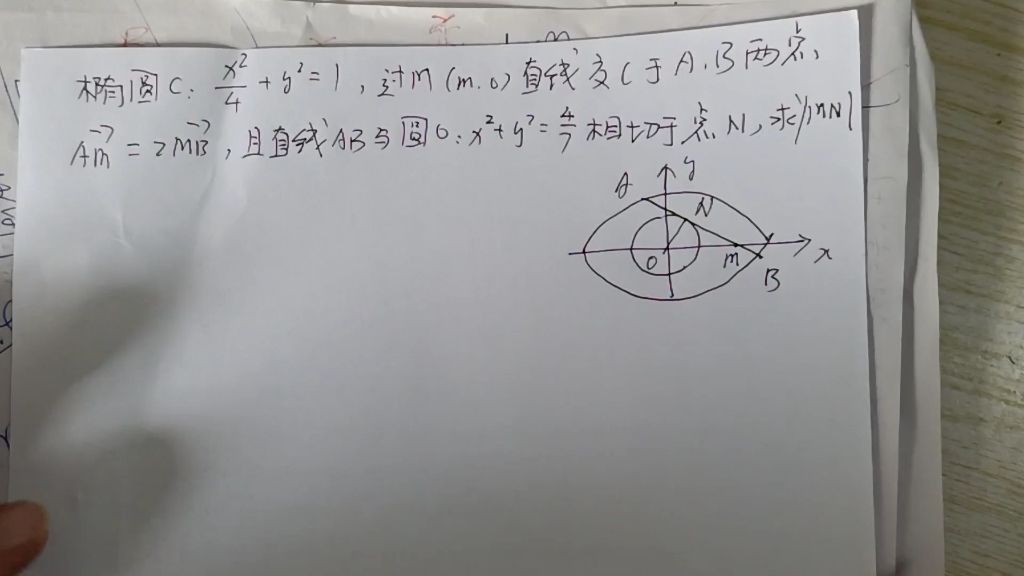 椭圆C: x²/4 + y² = 1, 过M(m.0)直线交C于A.B两点,
AM→ = 2MB→, 且直线AB与圆O: x²+y² = 4/7 相切于点N, 求|MN|
A
y
N
O
M
x
B